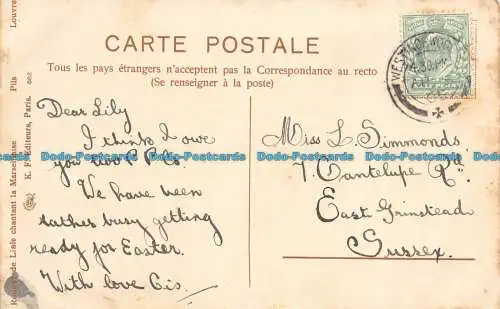 CARTE POSTALE
Tous les pays étrangers n'acceptent pas la Correspondance au recto
(Se renseigner à la poste)
Dear Lily
I think I owe
you two P.P.Cs.
We have been
rather busy getting
ready for Easter.
With love Cis.
Miss L. Simmonds
7. Cantelupe Rd.
East Grinstead
Sussex.
de Lisle chantant la Marseillaise
Pils
Louvre
K. F. Editeurs, Paris.
Dodo-Postcards Dodo-Postcards Dodo-Postcards Dodo-Postcards Dodo-Postcards